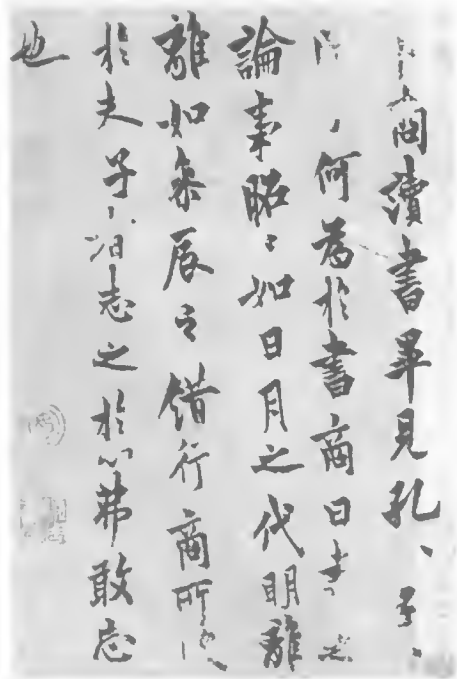 商讀書畢見孔〻子〻
何為於書商曰書之
論事昭〻如日月之代明離
離如參辰之錯行商所
於夫子志之於心弗敢忘
也